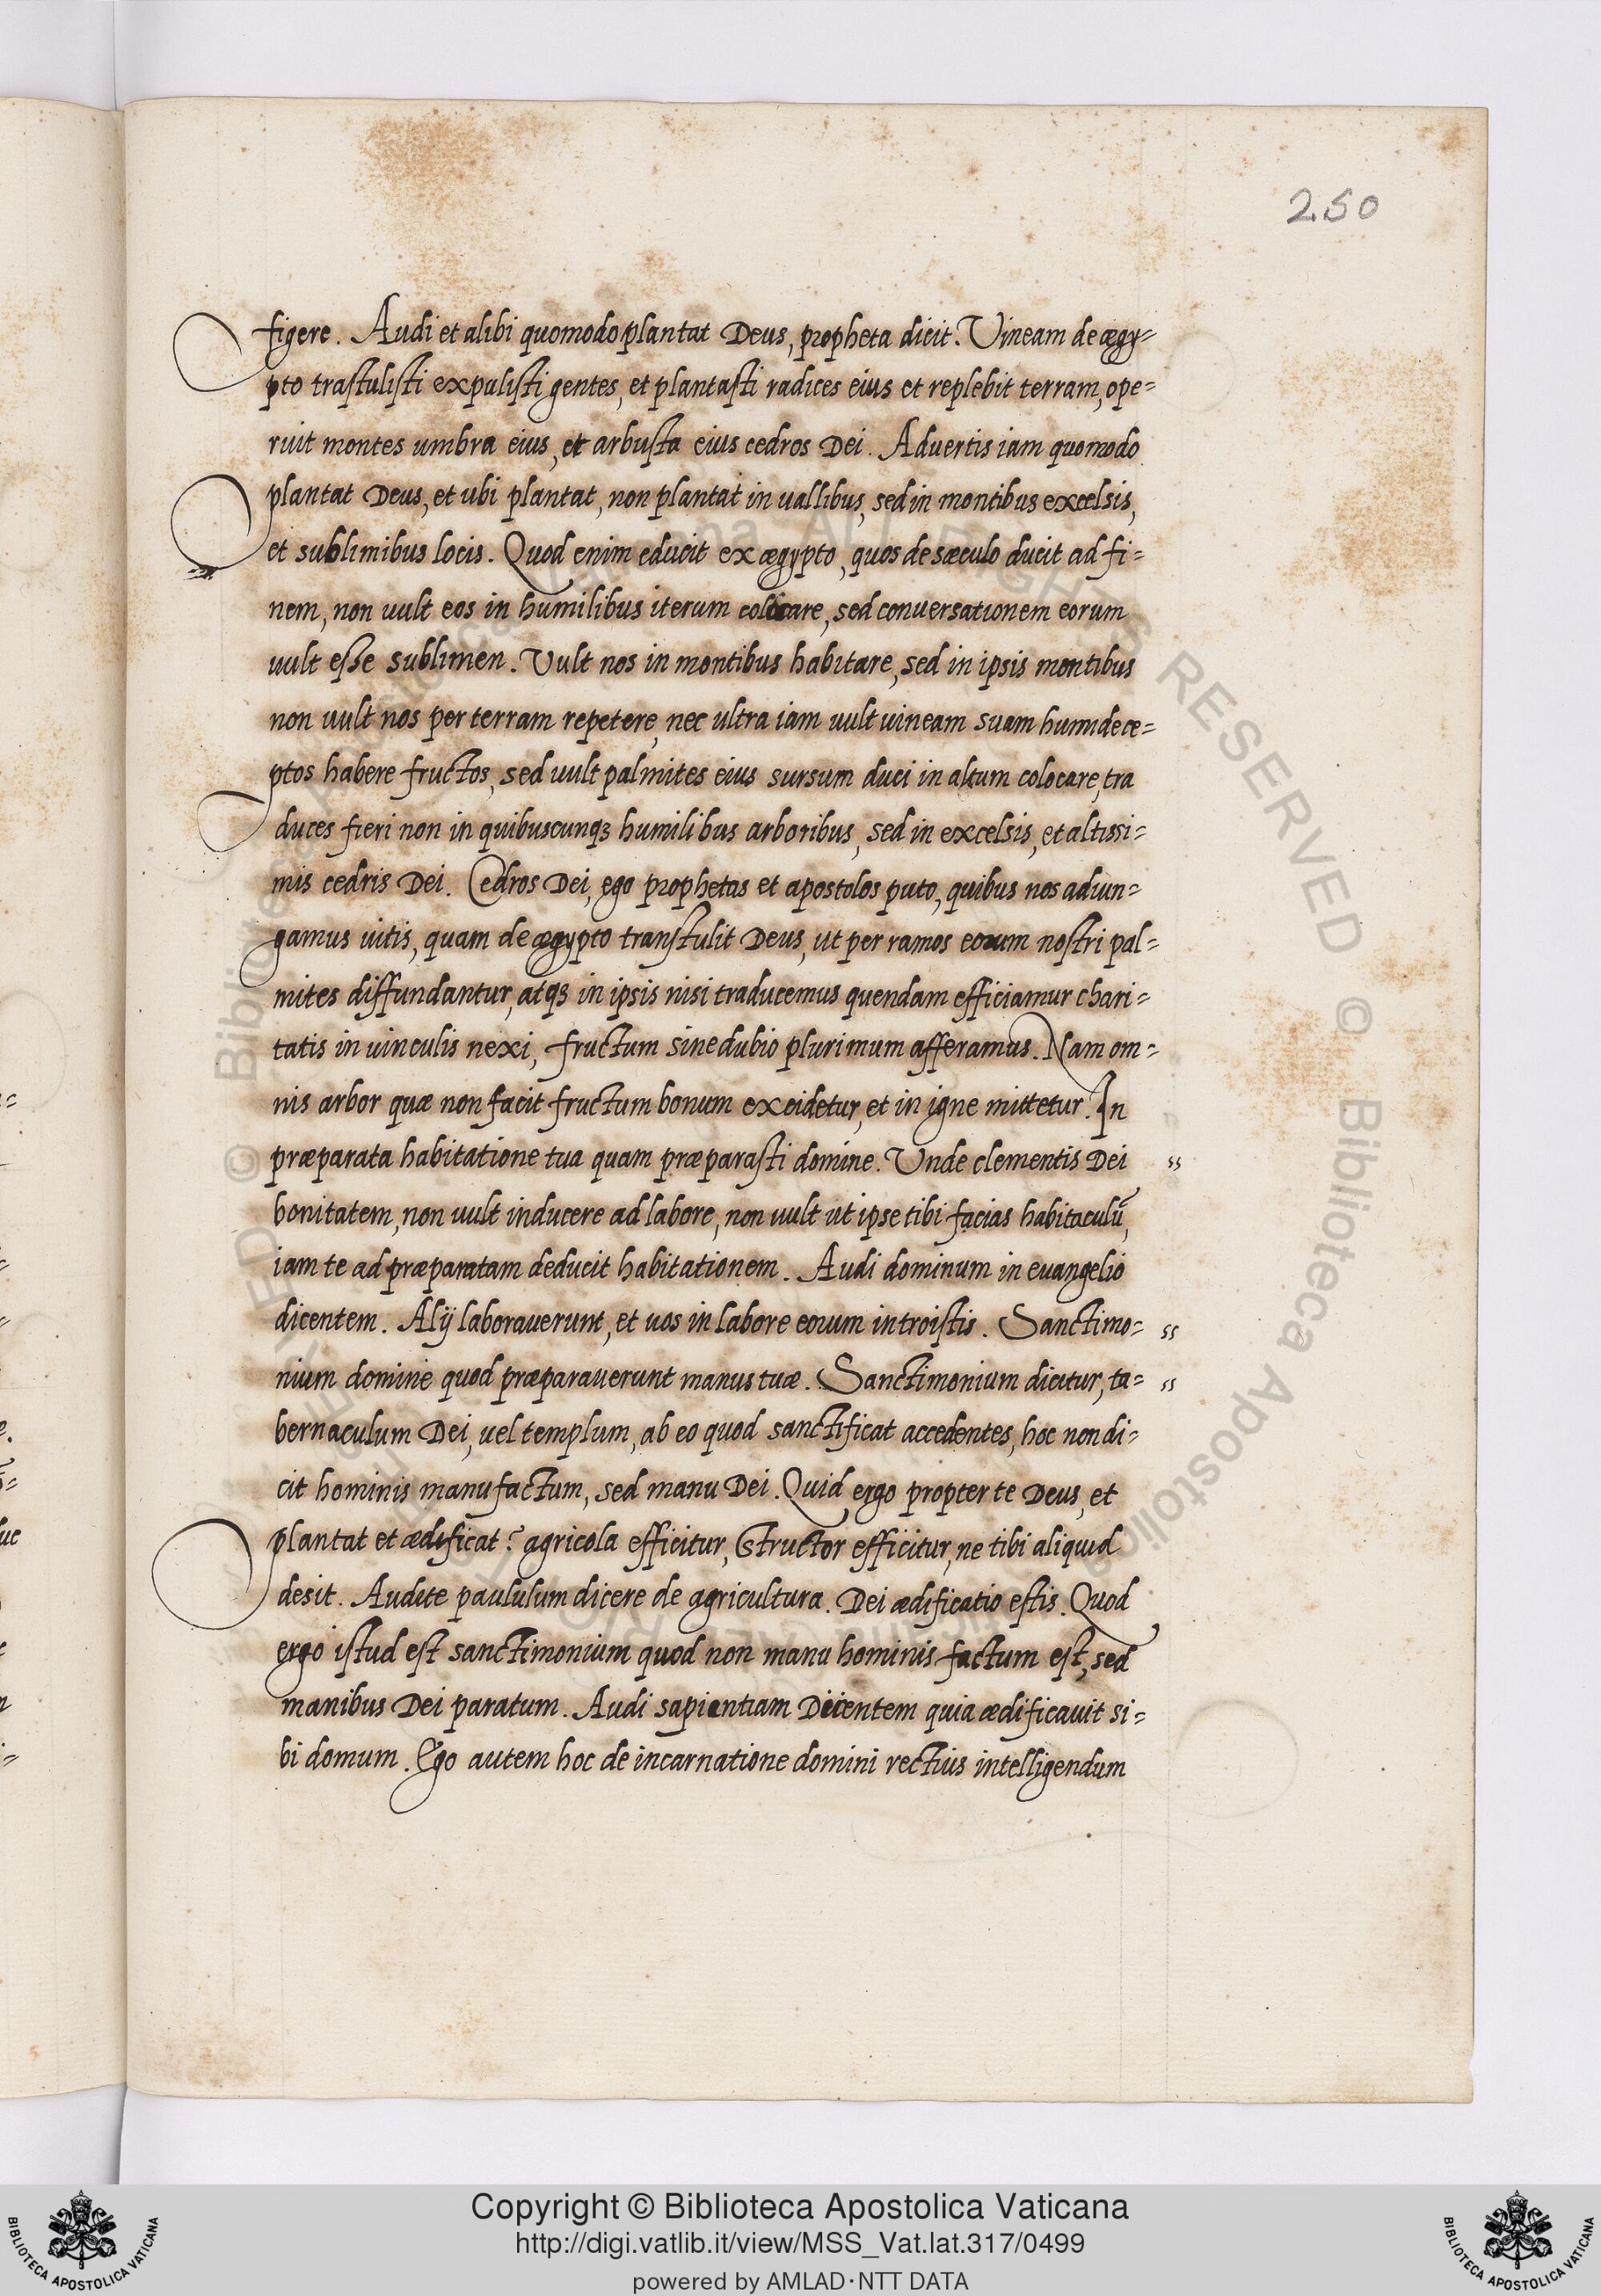 250
figere. Audi et alibi quomodo plantat Deus, propheta dicit. Vineam de ægy=
pto trastulisti expulisti gentes, et plantasti radices eius et replebit terram, ope=
ruit montes umbra eius, et arbusta eius cedros Dei. Aduertis iam quomodo
plantat Deus, et ubi plantat, non plantat in uallibus, sed in montibus excelsis,
et sublimibus locis. Quod enim educit ex ægypto, quos de sæculo ducit ad fi=
nem, non uult eos in humilibus iterum colocare, sed conuersationem eorum
uult esse sublimen. Vult nos in montibus habitare, sed in ipsis montibus
non uult nos per terram repetere, nec ultra iam uult uineam suam humi dece=
ptos habere fructos, sed uult palmites eius sursum duci in altum colocare, tra
duces fieri non in quibuscunqȝ humilibus arboribus, sed in excelsis, et altissi=
mis cedris Dei. Cedros Dei, ego prophetas et apostolos puto, quibus nos adiun=
gamus uitis, quam de ægypto transtulit Deus, ut per ramos eorum nostri pal=
mites diffundantur, atqȝ in ipsis nisi traducemus quendam efficiamur chari=
tatis in uinculis nexi, fructum sine dubio plurimum afferamus. Nam om=
nis arbor quæ non facit fructum bonum excidetur, et in igne mittetur. In
præparata habitatione tua quam præparasti domine. Unde clementis Dei "
bonitatem, non uult inducere ad labore, non uult ut ipse tibi facias habitaculū,
iam te ad præparatam deducit habitationem. Audi dominum in euangelio
dicentem. Alij laborauerunt, et uos in labore eorum introistis. Sanctimo= "
nium domine quod præparauerunt manus tuæ. Sanctimonium dicitur, ta= "
bernaculum Dei, uel templum, ab eo quod sanctificat accedentes, hoc non di=
cit hominis manu factum, sed manu Dei. Quid ergo propter te Deus, et
plantat et ædificat? agricola efficitur, structor efficitur, ne tibi aliquid
desit. Audite paululum dicere de agricultura. Dei ædificatio estis. Quod
ergo istud est sanctimonium quod non manu hominis factum est, sed
manibus Dei paratum. Audi sapientiam Dicentem quia ædificauit si=
bi domum. Ego autem hoc de incarnatione domini rectius intelligendum
Copyright © Biblioteca Apostolica Vaticana
http://digi.vatlib.it/view/MSS_Vat.lat.317/0499
powered by AMLAD·NTT DATA
BIBLIOTECA APOSTOLICA VATICANA
BIBLIOTECA APOSTOLICA VATICANA